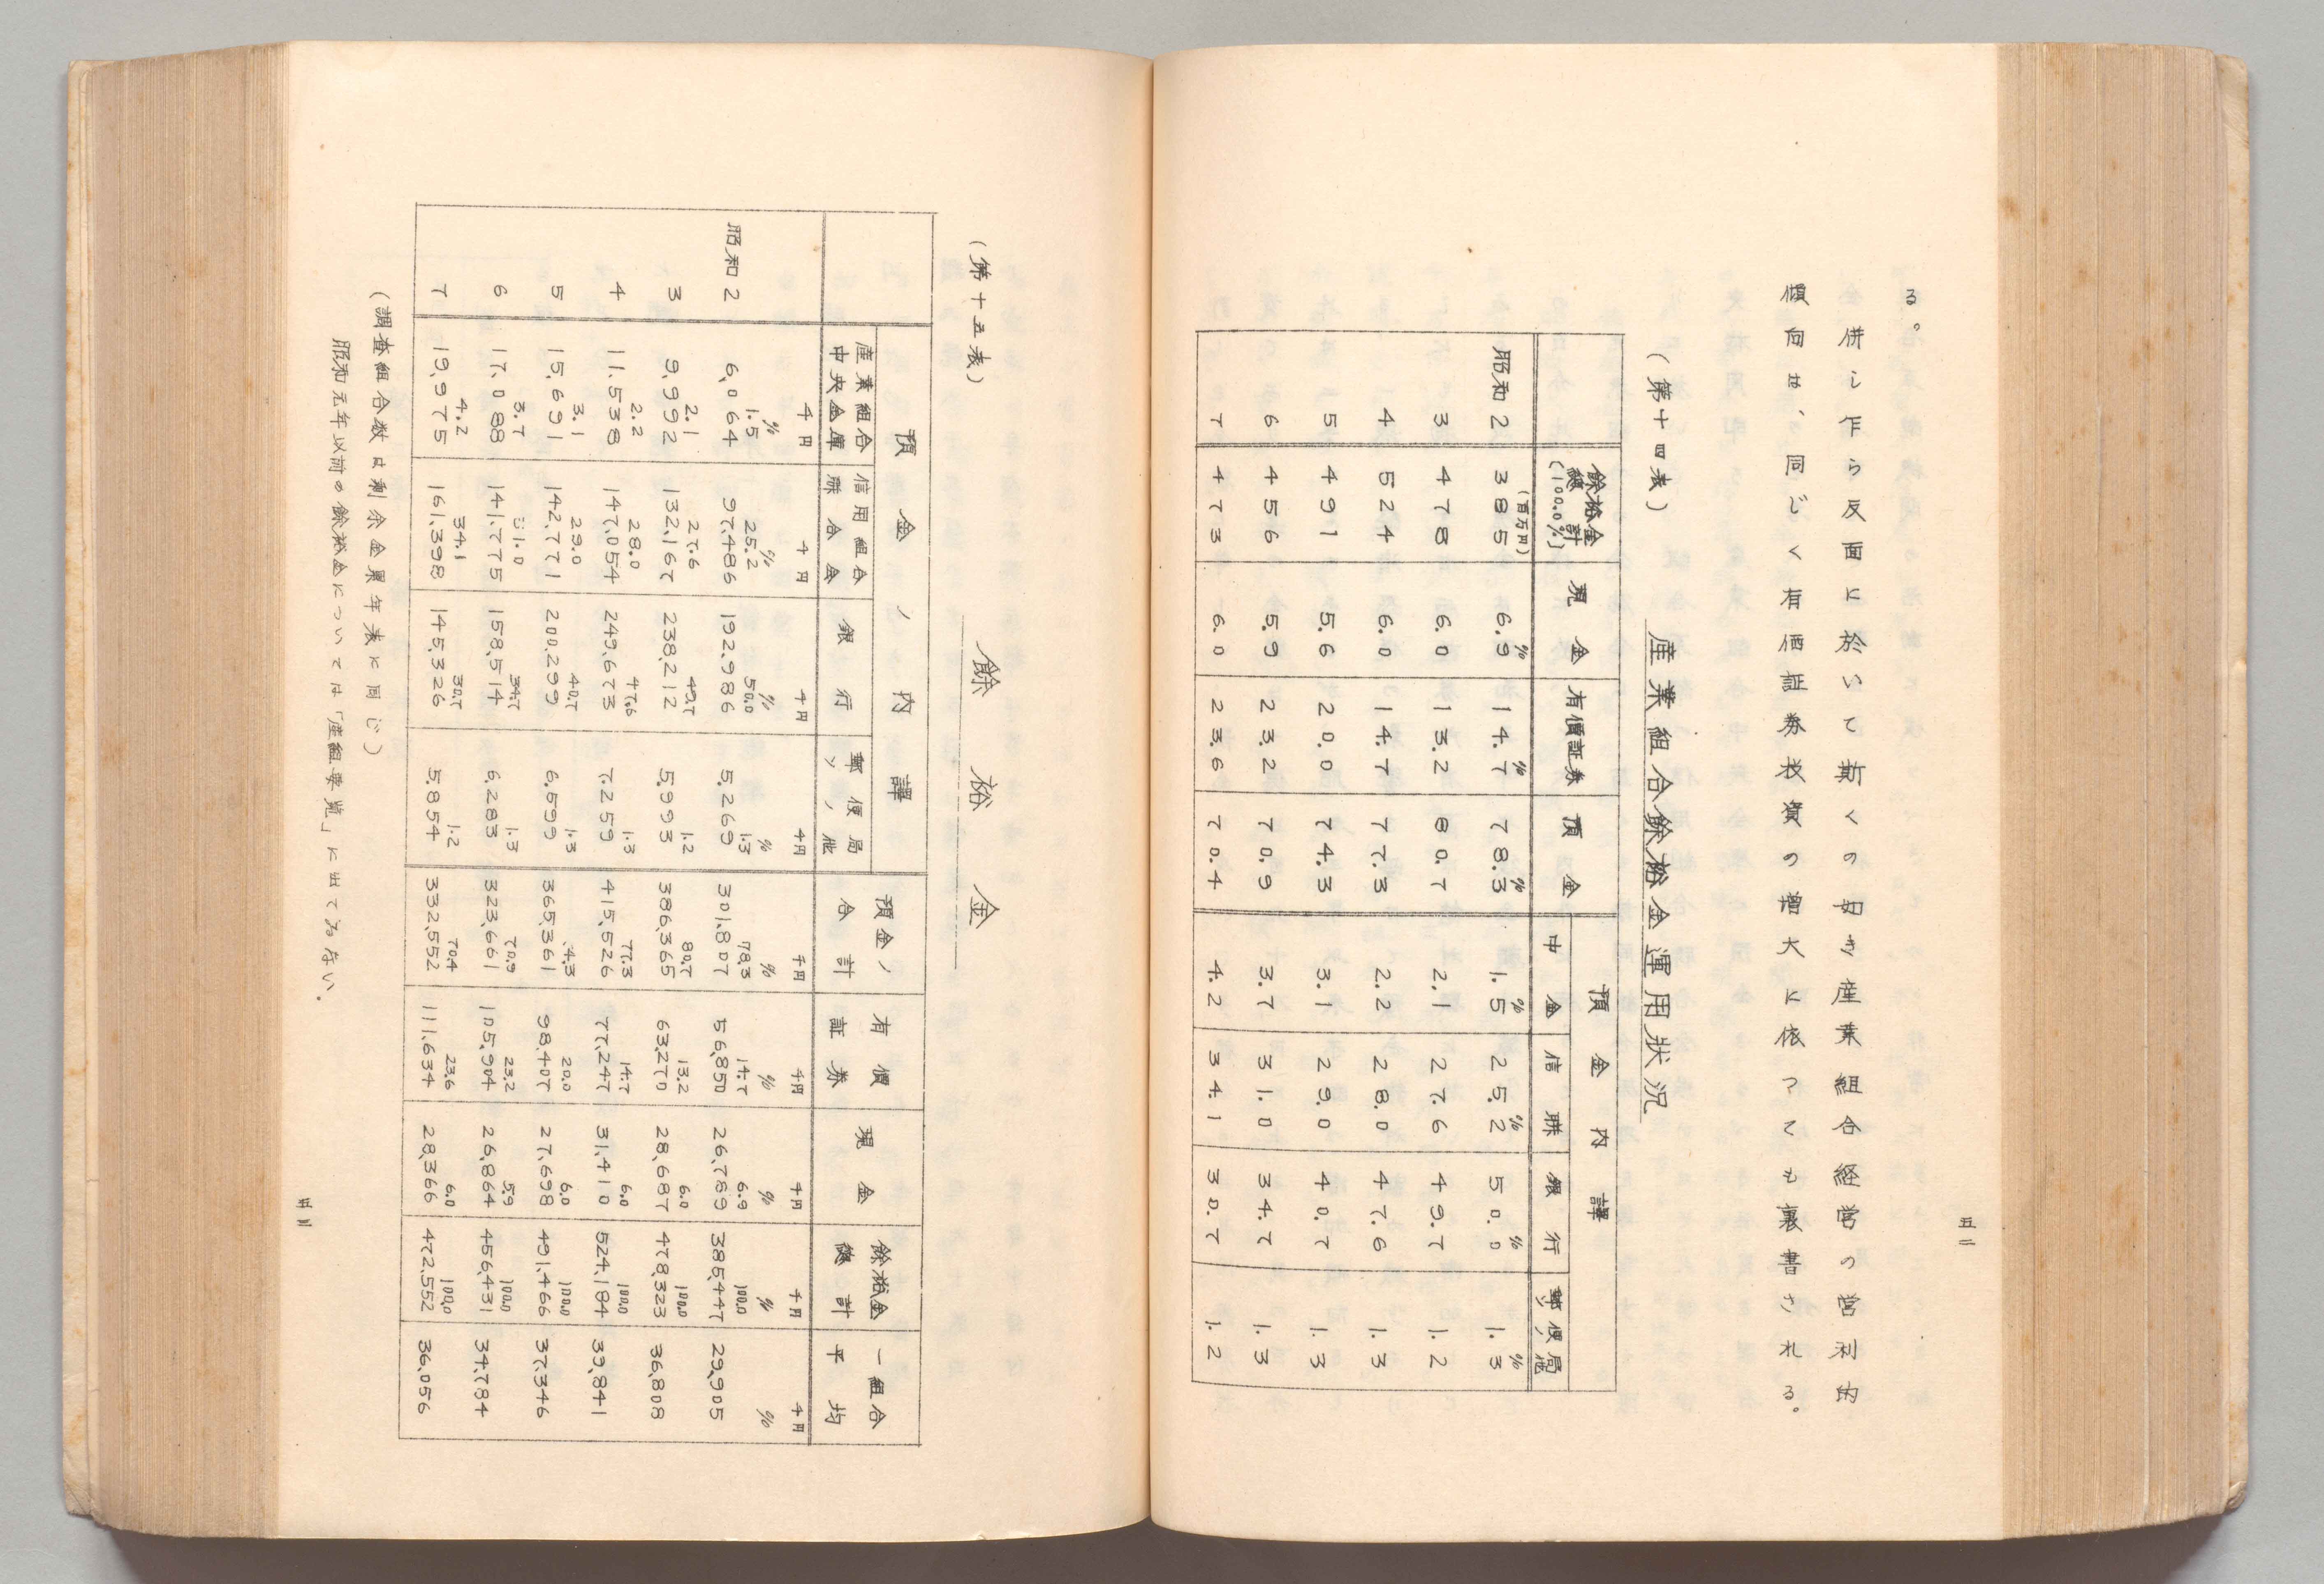 る。
併し乍ら反面に於いて斯くの如き産業組合経営の営利的
傾向は、同じく有価証券投資の増大に依つても裏書される。
(第十四表)
産業組合餘裕金運用狀況
餘裕金總計(100.0%) 現金 有價証券 預金 預金内譯
中金 信聯 銀行 郵便局ソノ他
(百万円) % % % % % % %
昭和2 385 6.9 14.7 78.3 1.5 25.2 50.0 1.3
3 478 6.0 13.2 80.7 2.1 27.6 49.7 1.2
4 524 6.0 14.7 77.3 2.2 28.0 47.6 1.3
5 491 5.6 20.0 74.3 3.1 29.0 40.7 1.3
6 456 5.9 23.2 70.9 3.7 31.0 34.7 1.3
7 473 6.0 23.6 70.4 4.2 34.1 30.7 1.2
五二
餘裕金
(第十五表)
預金ノ内譯 預金ノ合計 有價証券 現金 餘裕金總計 一組合平均
産業組合中央金庫 信用組合聯合会 銀行 郵便局ソノ他
千円 千円 千円 千円 千円 千円 千円 千円 千円
% % % % % % % % %
1.5 25.2 50.0 1.3 78.3 14.7 6.9 100.0
昭和2 6,064 97,486 192,986 5,269 301,807 56,850 26,789 385,447 29,905
2.1 27.6 49.7 1.2 80.7 13.2 6.0 100.0
3 9,992 132,167 238,212 5,993 386,365 63,270 28,687 478,323 36,808
2.2 28.0 47.6 1.3 77.3 14.7 6.0 100.0
4 11,538 147,054 249,673 7,259 415,526 77,247 31,410 524,184 39,841
3.1 29.0 40.7 1.3 4.3 20.0 6.0 100.0
5 15,691 142,771 200,299 6,599 365,361 98,407 27,698 491,466 37,346
3.7 31.0 34.7 1.3 70.9 23.2 5.9 100.0
6 17,088 141,775 158,514 6,283 323,661 105,904 26,864 456,431 34,784
4.2 34.1 30.7 1.2 70.4 23.6 6.0 100.0
7 19,975 161,398 145,326 5,854 332,552 111,634 28,366 472,552 36,056
(調査組合数は剰余金累年表に同じ)
昭和元年以前の餘裕金については「産組要覧」に出てゐない.
五三